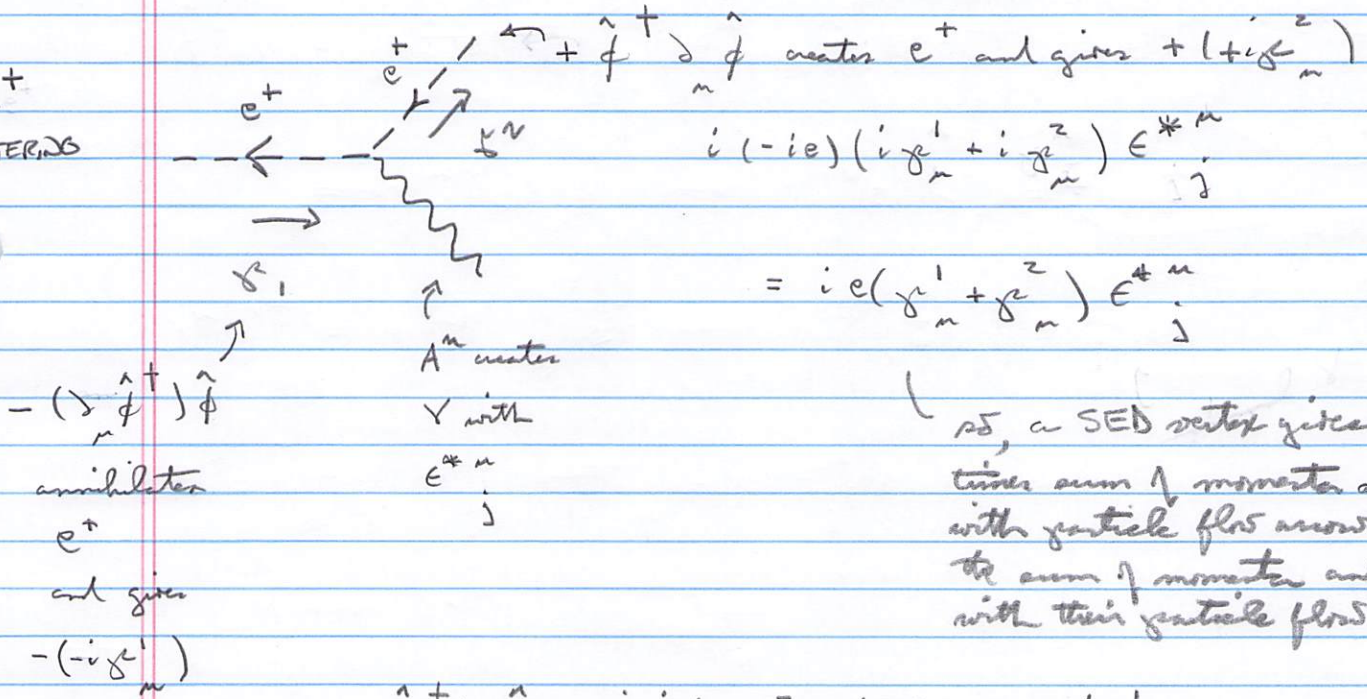 + φ̂† ∂_μ φ̂ creates e⁺ and gives + (+ip²_μ)
+
TERING
e⁺
e⁺
p²
p₁
i(-ie)(ip¹_μ + ip²_μ) ε*^μ_j
= ie(p¹_μ + p²_μ) ε*^μ_j
- (∂_μ φ̂†) φ̂
annihilates
e⁺
and gives
-(-ip¹_μ)
A^μ creates
γ with
ε*^μ_j
so, a SED vertex gives
times sum of momenta
with particle flow arrow
the sum of momenta
with their particle flow